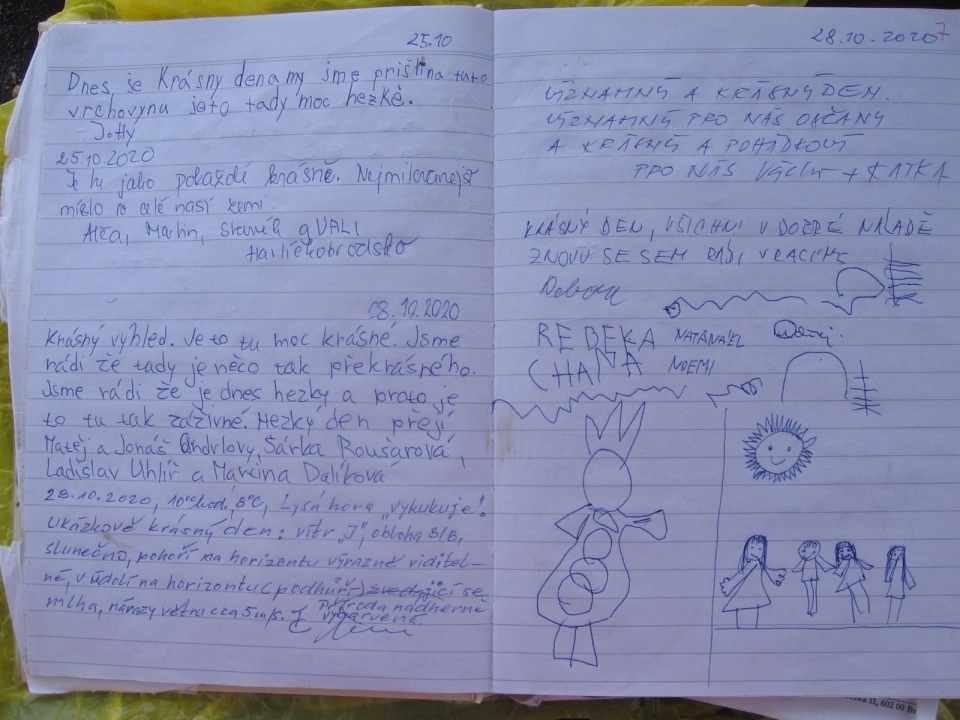 25.10
Dnes je Krásny den a my jme prišli na tuto
vrchovynu jeto tady moc hezkė.
Jolly
25.10.2020
Je tu jako pokaždé krásně. Nejmilovanější
místo v celé naší zemi.
Alča, Martin, a VALI
Havlíčkobrodsko
08.10.2020
Krásný výhled. Je to tu moc krásné. Jsme
rádi že tady je něco tak překrásného.
Jsme rádi že je dnes hezky a proto je
to tu tak záživné. Hezký den přejí
Matěj a Jonáš Ondrlovy, Šárka Roušarová,
Ladislav Uhlíř a Marcina Dalíková
28.10.2020, 10⁰⁰hod, 8°C, Lysá hora „vykukuje".
Ukázkově krásný den: vítr „J", obloha 3/8,
slunečno, pohoří na horizontu výrazně viditel-
né, v údolí na horizontu (podhůří) zvedající se
mlha, nárazy větru cca 5m/s. příroda nádherně
vybarvená
28.10.2020 7
VÝZNAMNÝ A KRÁSNÝ DEN.
VÝZNAMNÝ PRO NÁS OBČANY
A KRÁSNÝ A POHÁDKOVÝ
PRO NÁS Václav + KATKA
KRÁSNÝ DEN, VŠICHNI V DOBRÉ NÁLADĚ
ZNOVU SE SEM RÁDI VRACÍME
REBEKA NATANAEL
CHANA NOEMI
II, 602 00 B